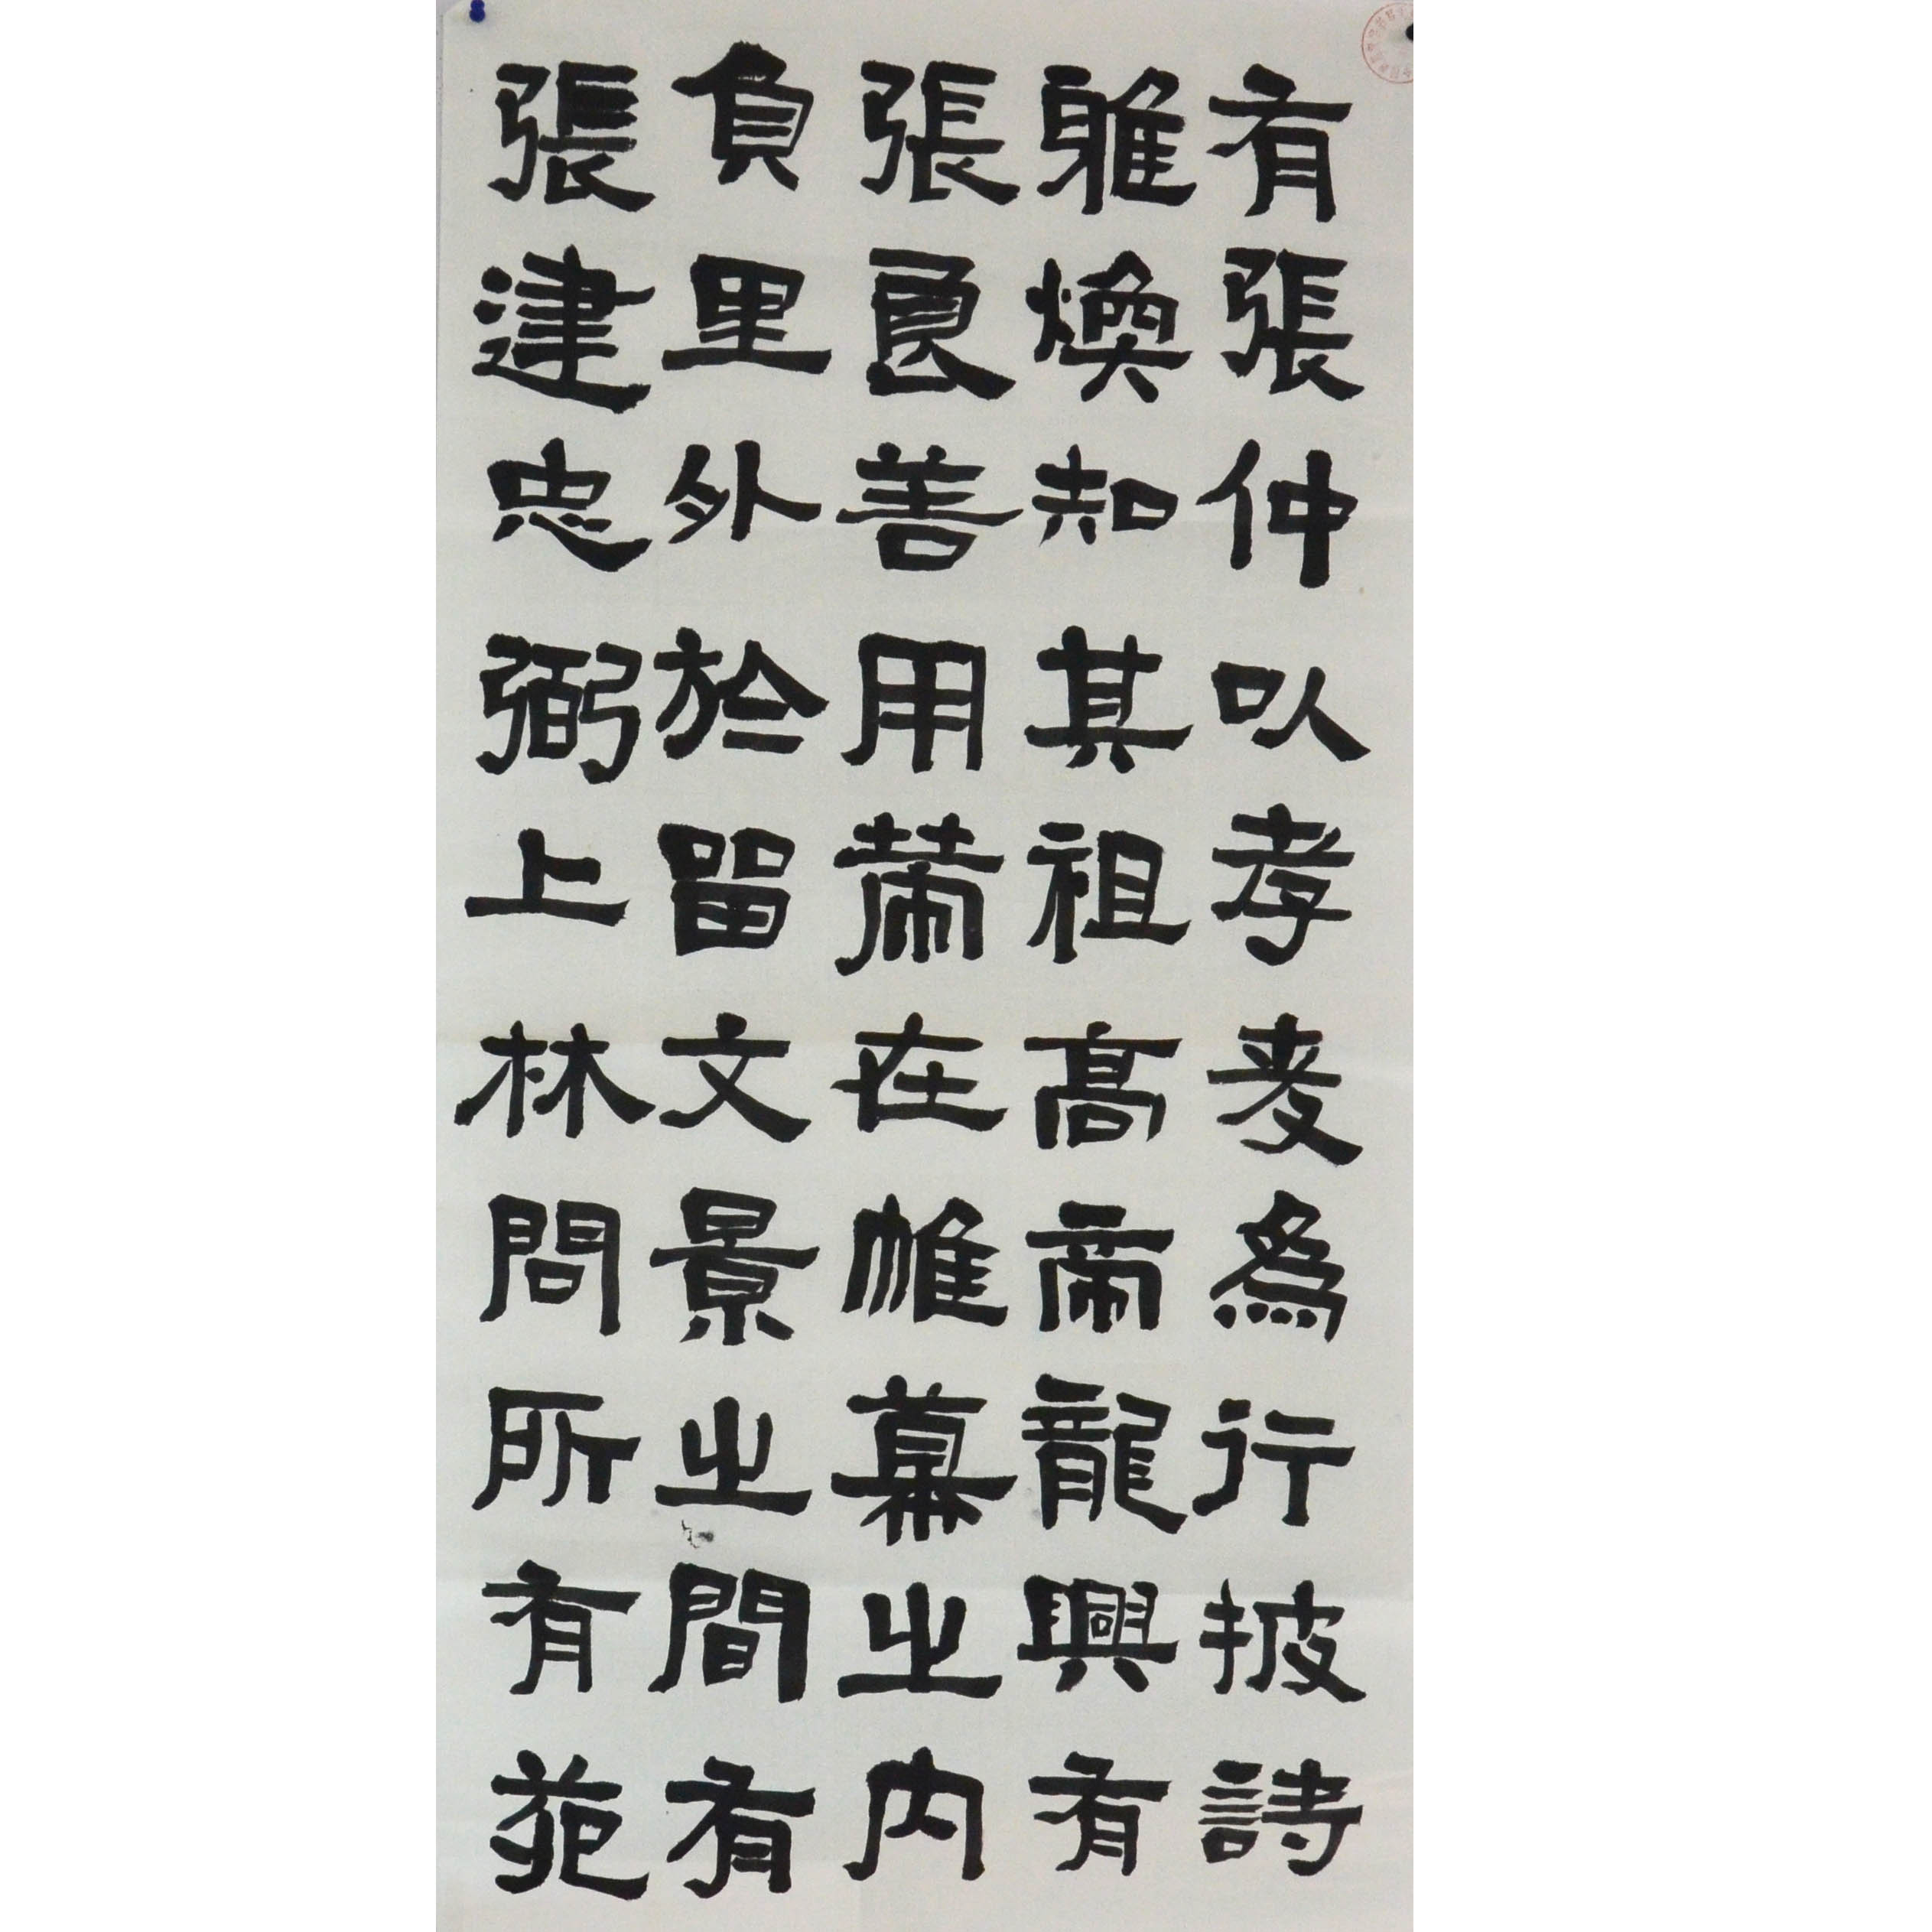 有張仲以孝友為行披詩
雅煥知其祖高帝龍興有
張良善用籌在帷幕之内
負里外於留文景之間有
張建忠弼上林問所有苑